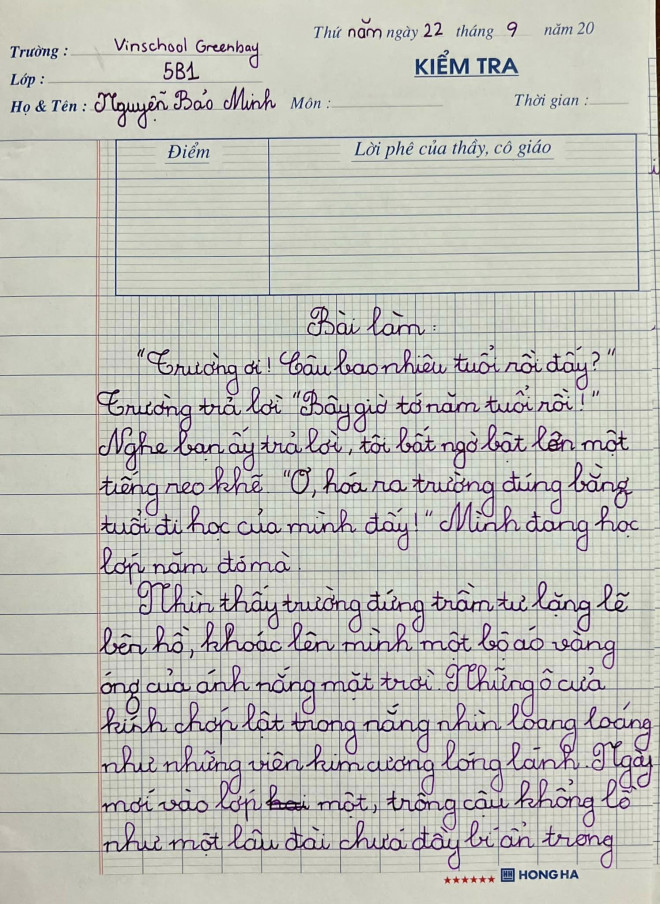 Thứ năm ngày 22 tháng 9 năm 20
Trường : Vinschool Greenbay
Lớp : 5B1
KIỂM TRA
Họ & Tên : Nguyễn Bảo Minh Môn : Thời gian :
Điểm
Lời phê của thầy, cô giáo
Bài làm :
"Trường ơi! Cậu bao nhiêu tuổi rồi đấy?"
Trường trả lời "Bây giờ tớ năm tuổi rồi!"
Nghe bạn ấy trả lời, tôi bất ngờ bật lên một
tiếng reo khẽ "Ơ, hóa ra trường đúng bằng
tuổi đi học của mình đấy!" Mình đang học
lớp năm đó mà.
Nhìn thấy trường đứng trầm tư lặng lẽ
bên hồ, khoác lên mình một bộ áo vàng
óng của ánh nắng mặt trời. Những ô cửa
kính chớp lật trong nắng nhìn loang loáng
như những viên kim cương lóng lánh. Ngày
mới vào lớp một, trông cậu khổng lồ
như một lâu đài chứa đầy bí ẩn trong
HONG HA